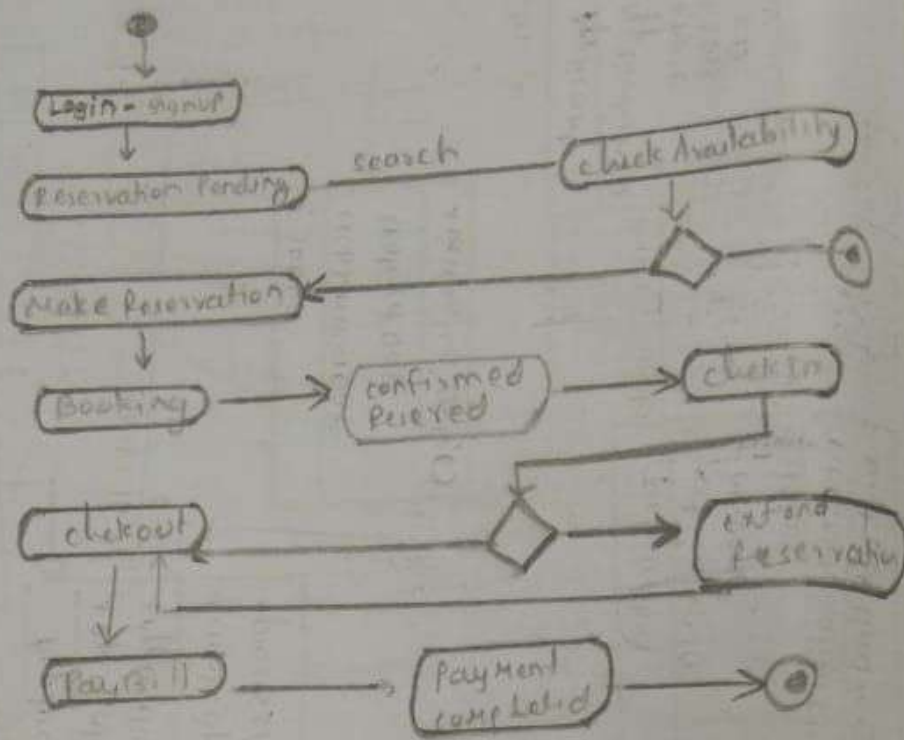 Login - signup
Reservation Pending
search
check Availability
Make Reservation
Booking
confirmed
Reserved
checkin
checkout
extend
Reservation
Pay Bill
Payment
completed